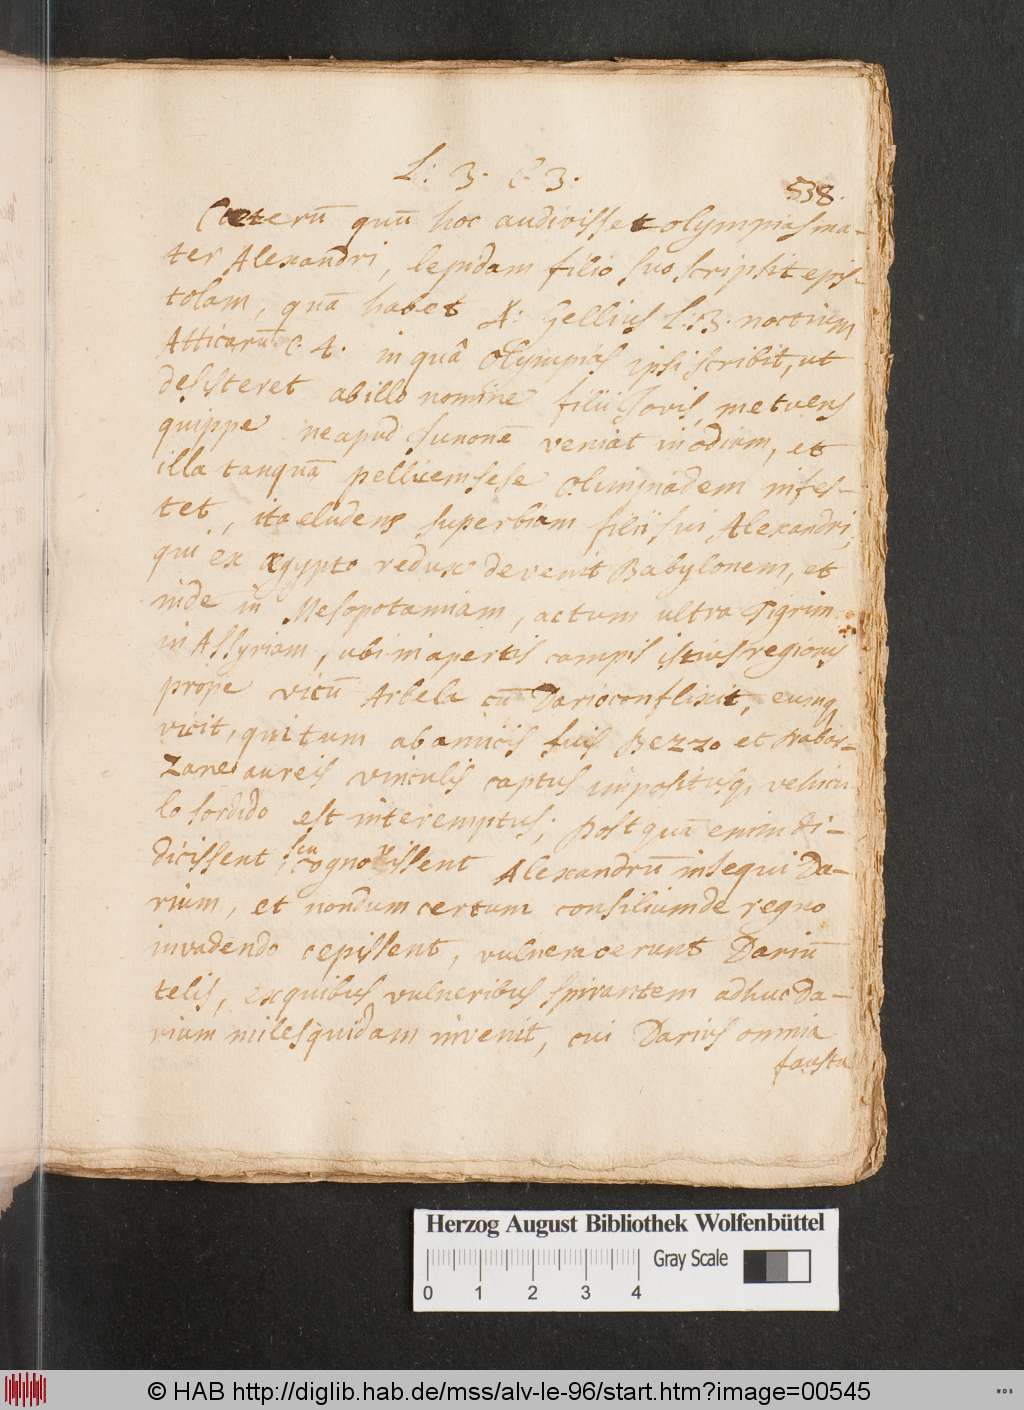 L: 3. C. 3.
538.
Caeterū quū hoc audivisset olympias ma-
ter Alexandri, lepidam filio suo scripsit epis-
tolam, quā habet A: Gellius L: 13. noctium
Atticarū C. 4. in quâ Olympias ipsi scribit, ut
desisteret ab illo nomine filii Jovis, metuens
quippe ne apud Junonē veniat in odium, et
illa tanquā pellicem sese Olimpiadem infes-
tet, ita eludens superbiam filii sui Alexandri,
qui ex Ægypto redux devenit Babylonem, et
inde in Mesopotamiam, actum ultra Tigrim
in Assyriam, ubi in apertis campis istius regionis
prope vicū Arbela cū Dario conflixit, eumq
vicit, qui tum ab amicis suis Bezzo et Nabar-
zane aureis vinculis captus impositusq vehicu
lo sordido est interemptus; postquū enim di-
dicissent seu cognovissent Alexandrū insequi Da-
rium, et nondum certum consilium de regno
invadendo cepissent, vulneraverunt Dariū
telis, ex quibus vulneribus spirantem adhuc Da-
rium miles quidam invenit, cui Darius omnia
fausta
Herzog August Bibliothek Wolfenbüttel
Gray Scale
0 1 2 3 4
© HAB http://diglib.hab.de/mss/alv-le-96/start.htm?image=00545